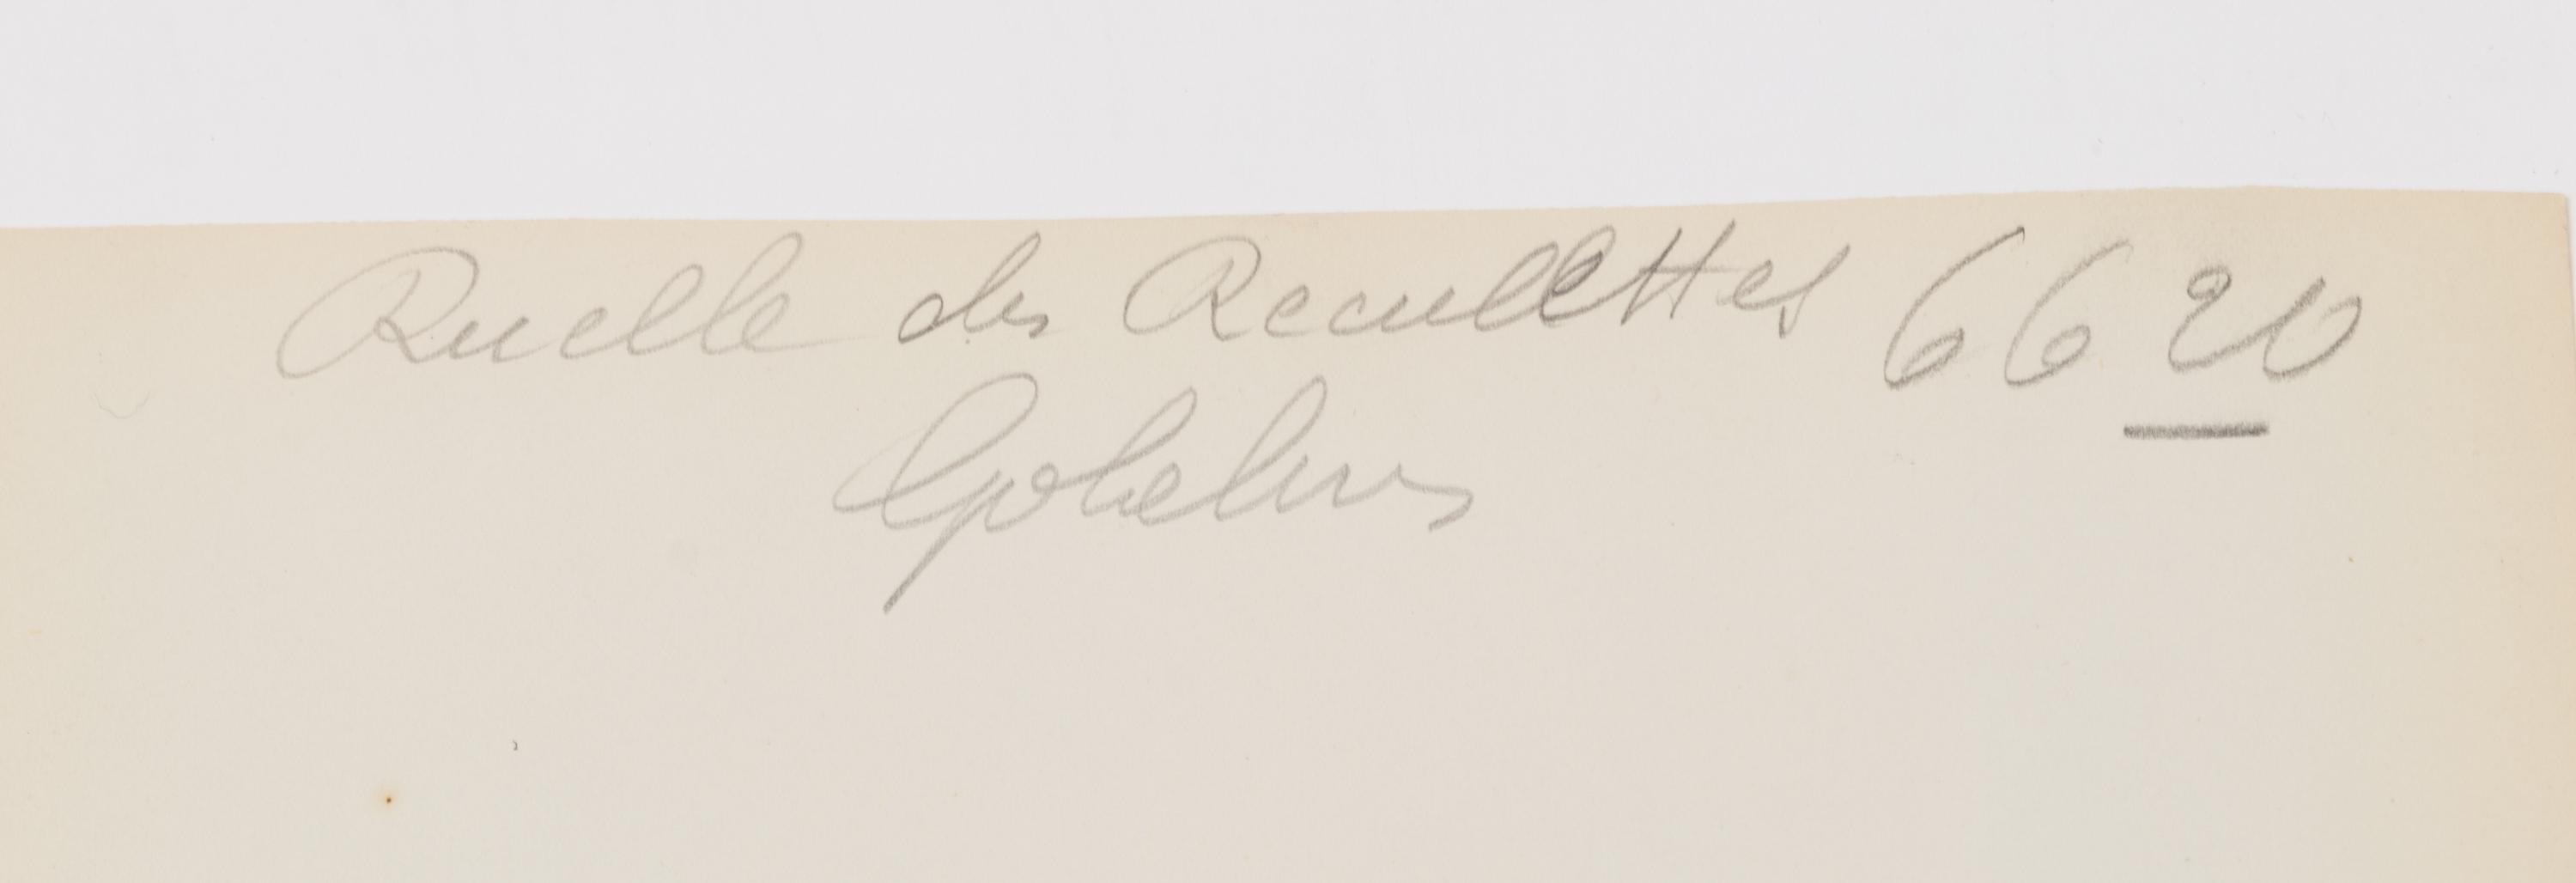 Ruelle des Reculettes 6620
Gobelins